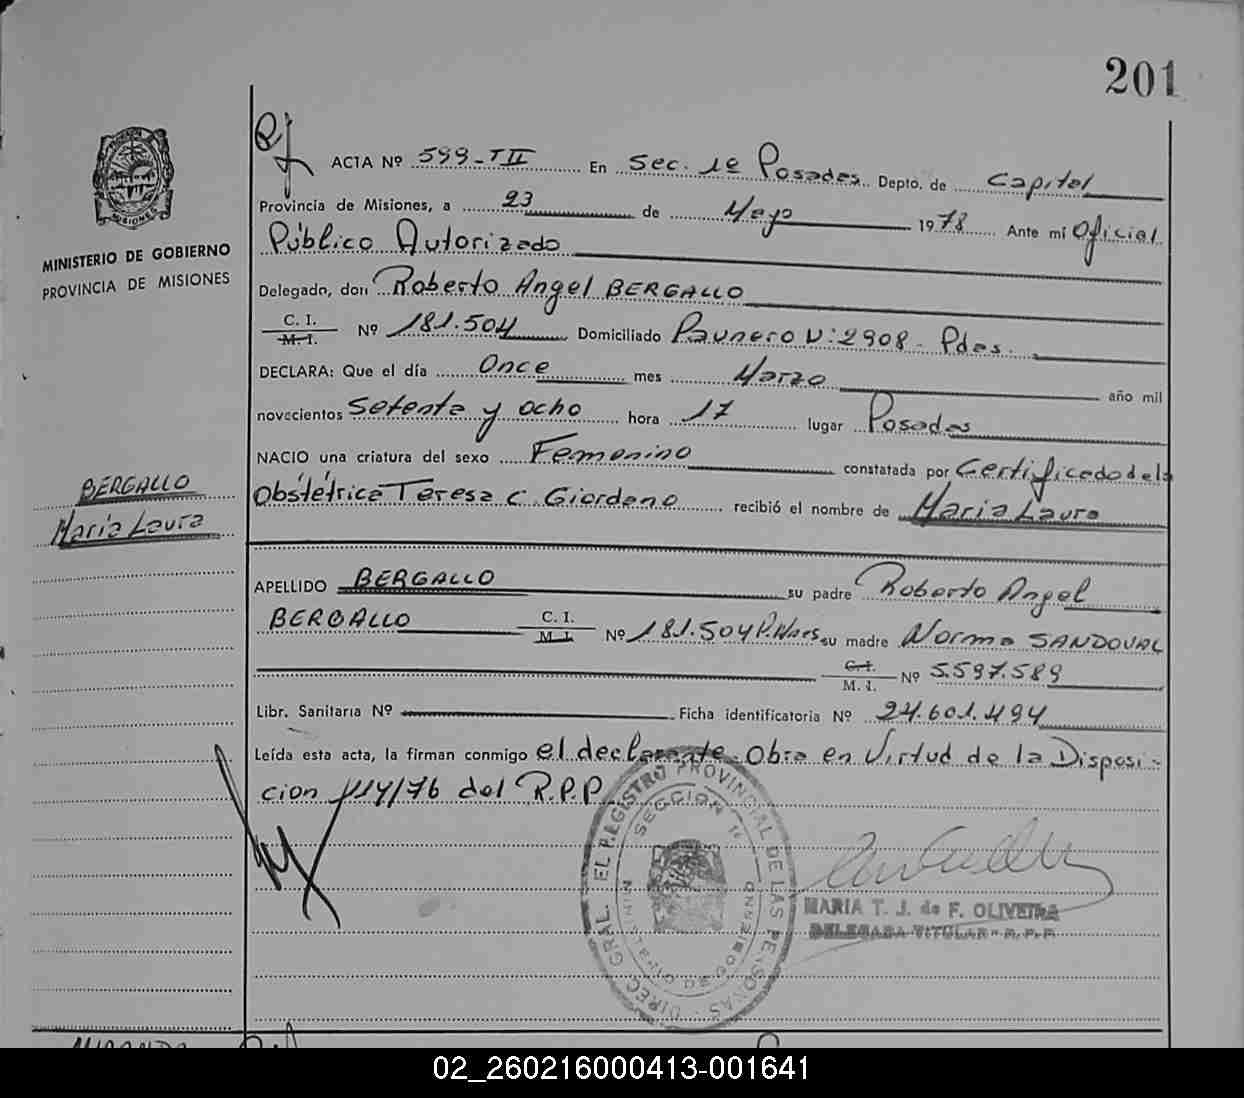 201
MINISTERIO DE GOBIERNO
PROVINCIA DE MISIONES
MISIONES
ACTA Nº 599-TII En Sec. 1º Posadas Depto. de Capital
Provincia de Misiones, a 23 de Mayo 1978 Ante mí Oficial
Público Autorizado
Delegado, don Roberto Angel BERGALLO
C. I.
M. I. Nº 181.504 Domiciliado Paunero Nº 2908 - Pdas.
DECLARA: Que el día Once mes Marzo año mil
novecientos Setenta y ocho hora 17 lugar Posadas
NACIO una criatura del sexo Femenino constatada por Certificado de la
Obstétrica Teresa C. Giordano recibió el nombre de Maria Laura
BERGALLO
Maria Laura
APELLIDO BERGALLO su padre Roberto Angel
BERGALLO C. I.
M. I. Nº 181.504 P. Mnes su madre Norma SANDOVAL
C. I.
M. I. Nº 5.597.589
Libr. Sanitaria Nº Ficha identificatoria Nº 24.601.494
Leída esta acta, la firman conmigo el declarante. Obra en Virtud de la Disposi-
cion 114/76 del R.P.P.
DIREC. GRAL. EL REGISTRO PROVINCIAL DE LAS PERSONAS
SECCION 1ª
MARIA T. J. de F. OLIVEIRA
DELEGADA TITULAR - R. P. P.
MIRANDA
02_260216000413-001641